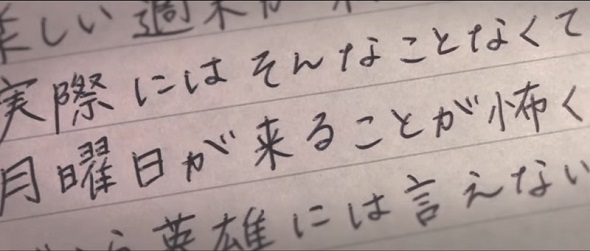 楽しい週末が
実際にはそんなことなくて
月曜日が来ることが怖く
英雄には言えない